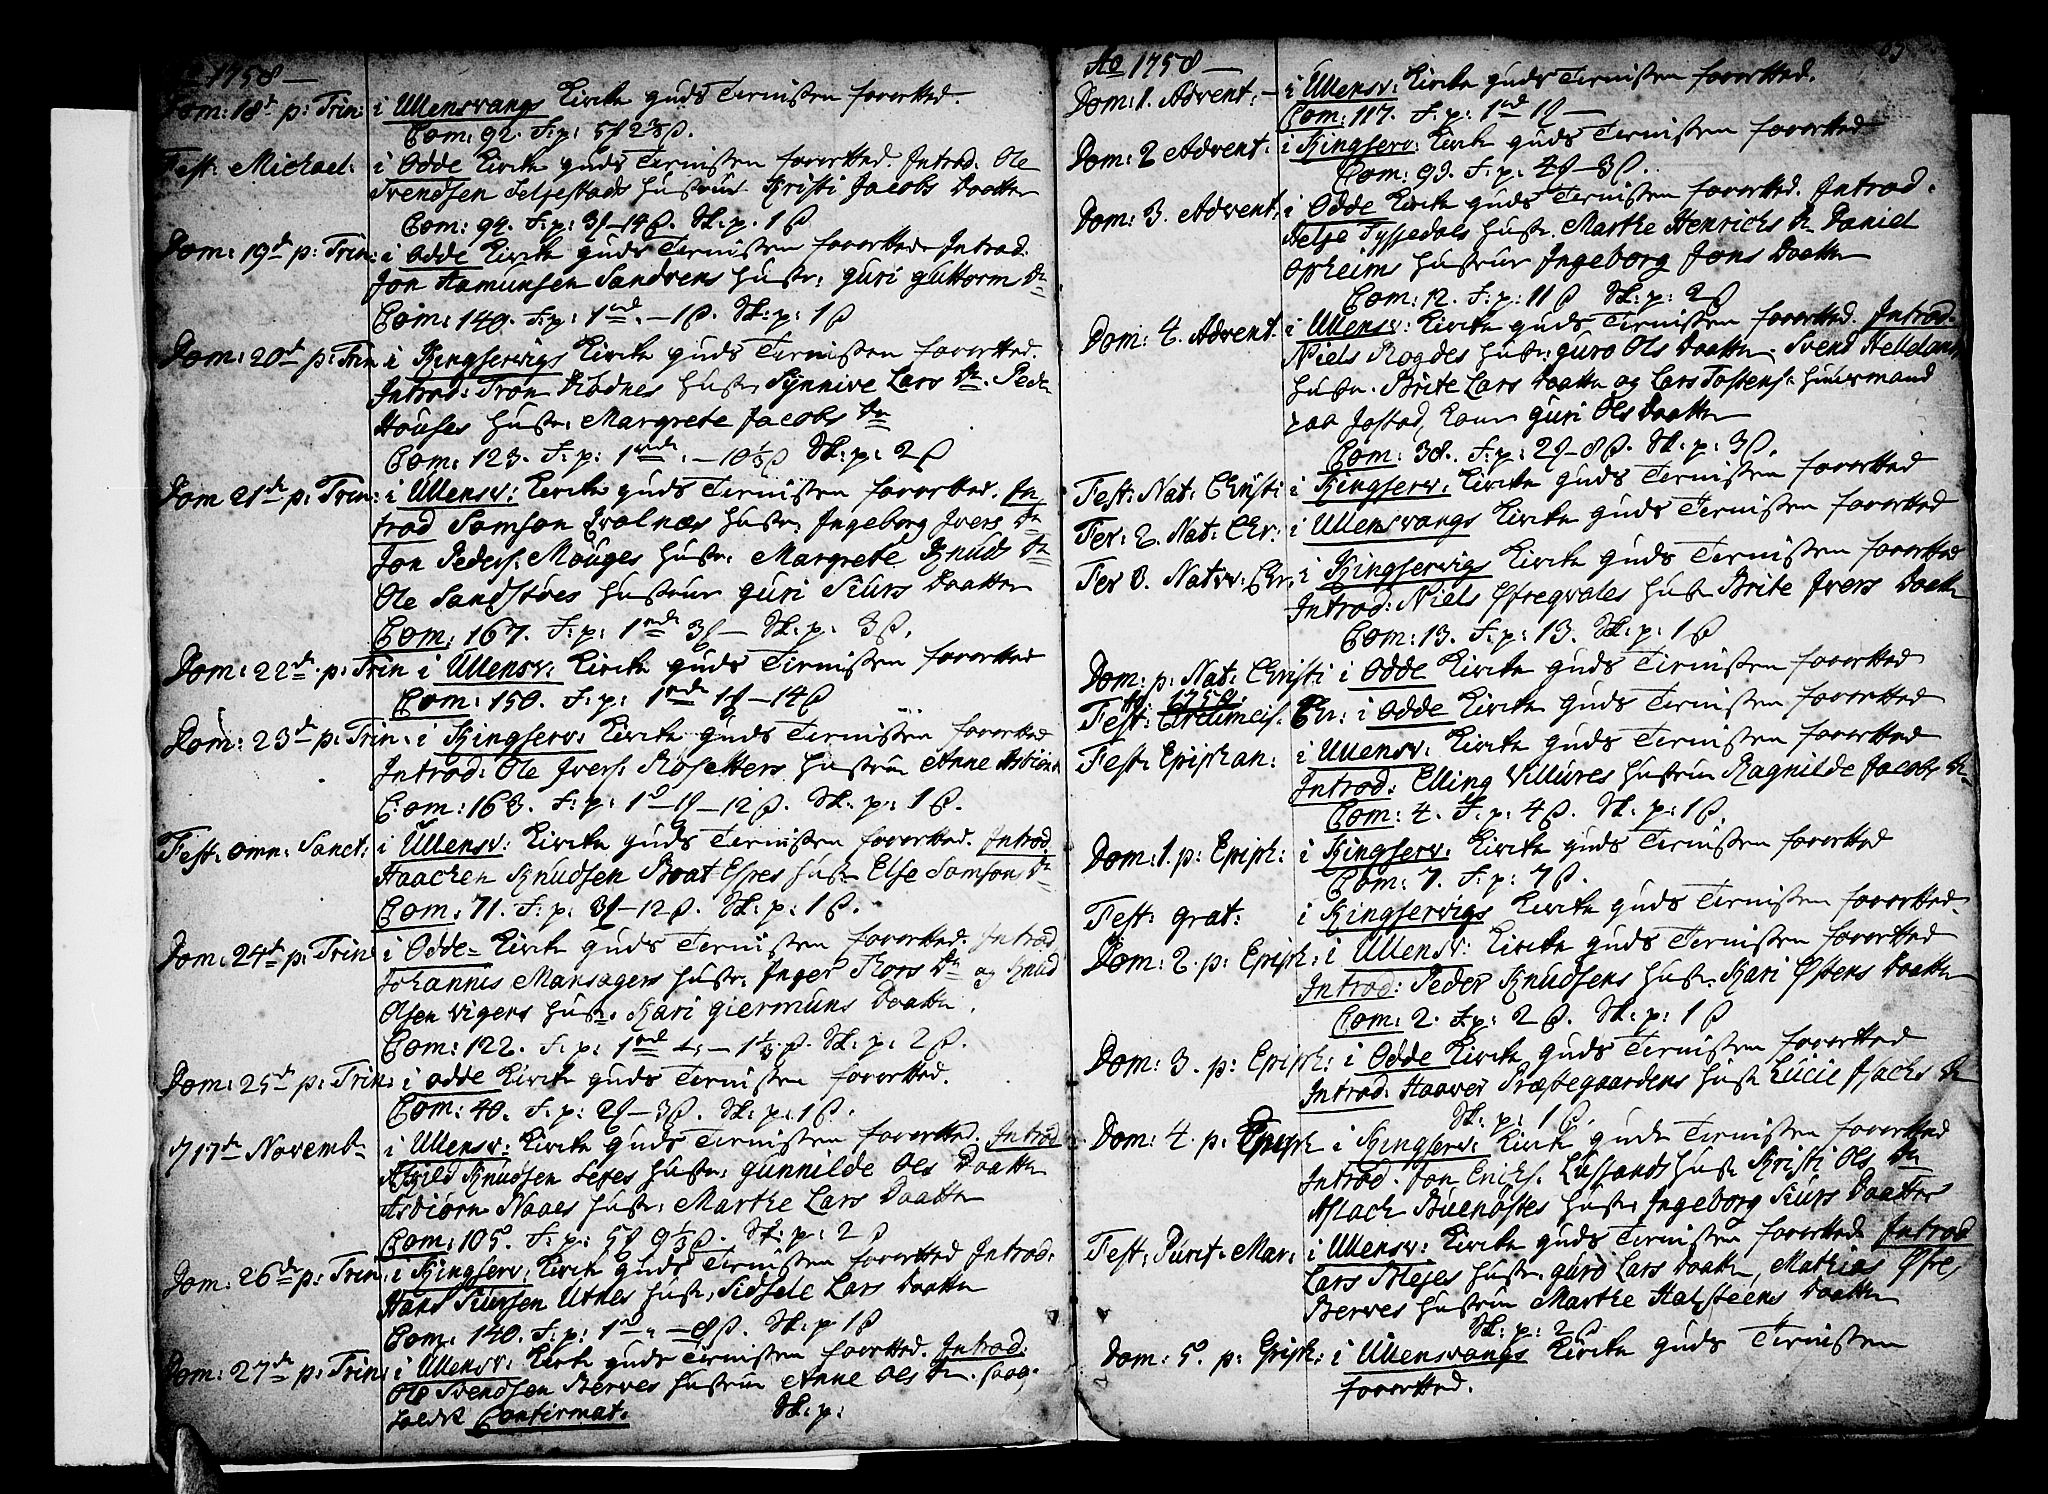 Ao 1758 —
Dom: 18de p: Trin: i Ullensvangs Kirke Guds Tienisten forretted.
Com: 92. F: p: 5 2⅔ ß.
Fest: Michael: i Odde Kirke Guds Tienisten forretted. Introd: Ole
Svendsen Seljestads Hustrue Kristi Jacobs Daatter
Com: 94. F: p: 3 – 14 ß. Sk: p. 1 ß
Dom: 19de p: Trin: i Odde Kirke Guds Tienisten forretted. Introd:
Jon Aamunsen Sandvens Hustr: Guri Guttorm Dr
Com: 140. F: p: 1 rd. – 1 ß. Sk: p: 1 ß
Dom: 20de p: Trin i Kingservigs Kirke Guds Tienisten forretted.
Introd: Tron Rødnes Hustr: Synnive Lars Dr. Peder
Houses Hustr: Margrete Jacobs Dr
Com: 123. F: p: 1 rd. – 10⅓ ß Sk: p: 2 ß
Dom 21de p: Trin: i Ullensv: Kirke Guds Tienisten forretted. In-
trod Samson Qvalnæs Hustr: Ingeborg Ivers Dr
Jon Peders: Mouges Hustr: Margrete Knuds Dr
Ole Sandstøes Hustrue Guri Siurs Daatter
Com: 167. F: p: 1 rd 3 – Sk: p: 3 ß.
Dom: 22de p: Trin i Ullensv: Kirke Guds Tienisten forretted
Com: 150. F: p: 1 rd 1 – 14 ß
Dom: 23de p: Trin: i Kingserv: Kirke Guds Tienisten forretted
Introd: Ole Ivers: Røsetters Hustrue Anne Asbiørns
Com: 163. F: p: 1 – 1 – 12 ß. Sk: p: 1 ß.
Fest: omn: Sanct: i Ullensv: Kirke Guds Tienisten forretted. Introd
Haachen Knudsen Boat Espes Hustr Else Samsons Dr
Com: 71. F: p: 3 – 12 ß. Sk: p: 1 ß.
Dom: 24de p: Trin i Odde Kirke Guds Tienisten forretted. Introd
Johannis Mansagers Hustr: Inger Roers Dr og Knud
Olsen Vigers Hustr. Kari Giermuns Daatter.
Com: 122. F: p: 1 rd – 1⅓ ß. Sk: p: 2 ß.
Dom: 25de p: Trin: i Odde Kirke Guds Tienisten forretted.
Com: 40. F: p: 2 – 3 ß. Sk: p: 1 ß.
17de Novembr i Ullensv: Kirke Guds Tienisten forretted. Introd
Knudsen Hustr: Gunnilde Ols Daatter
Asbiørn Naaes Hustr: Marthe Lars Daatter
Com: 105. F: p: 5 9⅓ ß. Sk: p: 2 ß
Dom: 26de p: Trin: i Kingserv: Kirke Guds Tienisten forretted Introd:
Hans Siursen Utnes Hustr: Sidsele Lars Daatter
Com: 140. F: p: 1 – – 8 ß. Sk: p 1 ß
Dom: 27de p: Trin: i Ullensv: Kirke Guds Tienisten forretted. Introd:
Ole Svendsen Berves Hustrue Anne Ols Dr.
holdt Confirmat: Sk: p:
Ao 1758 —
Dom: 1. Advent: – i Ullensv: Kirke Guds Tienisten forretted.
Com: 117. F: p: 1 rd 1 —
Dom: 2 Advent. i Kingserv: Kirke Guds Tienisten forretted
Com: 93. F: p: 4 – 3 ß.
Dom: 3. Advent: i Odde Kirke Guds Tienisten forretted. Introd.
Helje Tyssedals Hustr. Marthe Henrichs Dr Daniel
Opheims Hustrue Ingeborg Jons Daatter
Com: 12. F: p: 11 ß Sk: p: 2 ß
Dom: 4. Advent. i Ullensv: Kirke Guds Tienisten forretted. Introd.
Niels Rogdes Hustr: Guro Ols Daatter. Svend Hellelands
Hustr. Brite Lars Daatter og Lars Tostens: Huusmand
paa Jostad, Kone Guri Ols Daatter
Com: 38. F: p: 2 – 8 ß. Sk: p: 3 ß.
Fest: Nat: Christi i Kingserv: Kirke Guds Tienisten forretted
Fer: 2. Nat: Chr: i Ullensvangs Kirke Guds Tienisten forretted
Fer 3. Nativ: Chr: i Kingservigs Kirke Guds Tienisten forretted
Introd: Niels Øfregvales Hustr Brite Ivers Daatter
Com: 13. F: p: 13. Sk: p: 1 ß
Dom: p: Nat: Christi i Odde Kirke Guds Tienisten forretted
Ao 1759.
Fest: Circumcis. Chr: i Odde Kirke Guds Tienisten forretted
Fest: Epiphan: i Ullensv: Kirke Guds Tienisten forretted
Introd: Elling Villures Hustrue Ragnilde Jacobs Dr
Com: 4. F: p: 4 ß. Sk: p: 1 ß.
Dom: 1. p: Epiph: i Kingserv: Kirke Guds Tienisten forretted
Com: 7. F: p: 7 ß.
Fest: grat: i Kingservigs Kirke Guds Tienisten forretted.
Dom: 2. p: Epiph: i Ullensv: Kirke Guds Tienisten forretted
Introd: Peder Knudsens Hustr. Kari Østens Daatter
Com: 2. F: p: 2 ß. Sk: p: 1 ß
Dom: 3. p: Epiph: i Odde Kirke Guds Tienisten forretted
Introd: Haaver Præstegaardens Hustr Lucie Isachs Dr
Sk: p: 1 ß.
Dom: 4. p: Epiph i Kingserv: Kirke Guds Tienisten forretted
Introd. Jon Erichs. Lussands Hustr Kristi Ols Dr
Aslach Buenøstes Hustr: Ingeborg Siurs Daatter
Fest: Purit: Mar: i Ullensv: Kirke Guds Tienisten forretted Introd
Lars Blejes Hustr: Guro Lars Daatter, Mathias Øfre
Berves Hustrue Marthe Halsteens Daatter
Sk: p: 2 ß
Dom: 5. p: Epiph: i Ullensvangs Kirke Guds Tienisten
forretted.